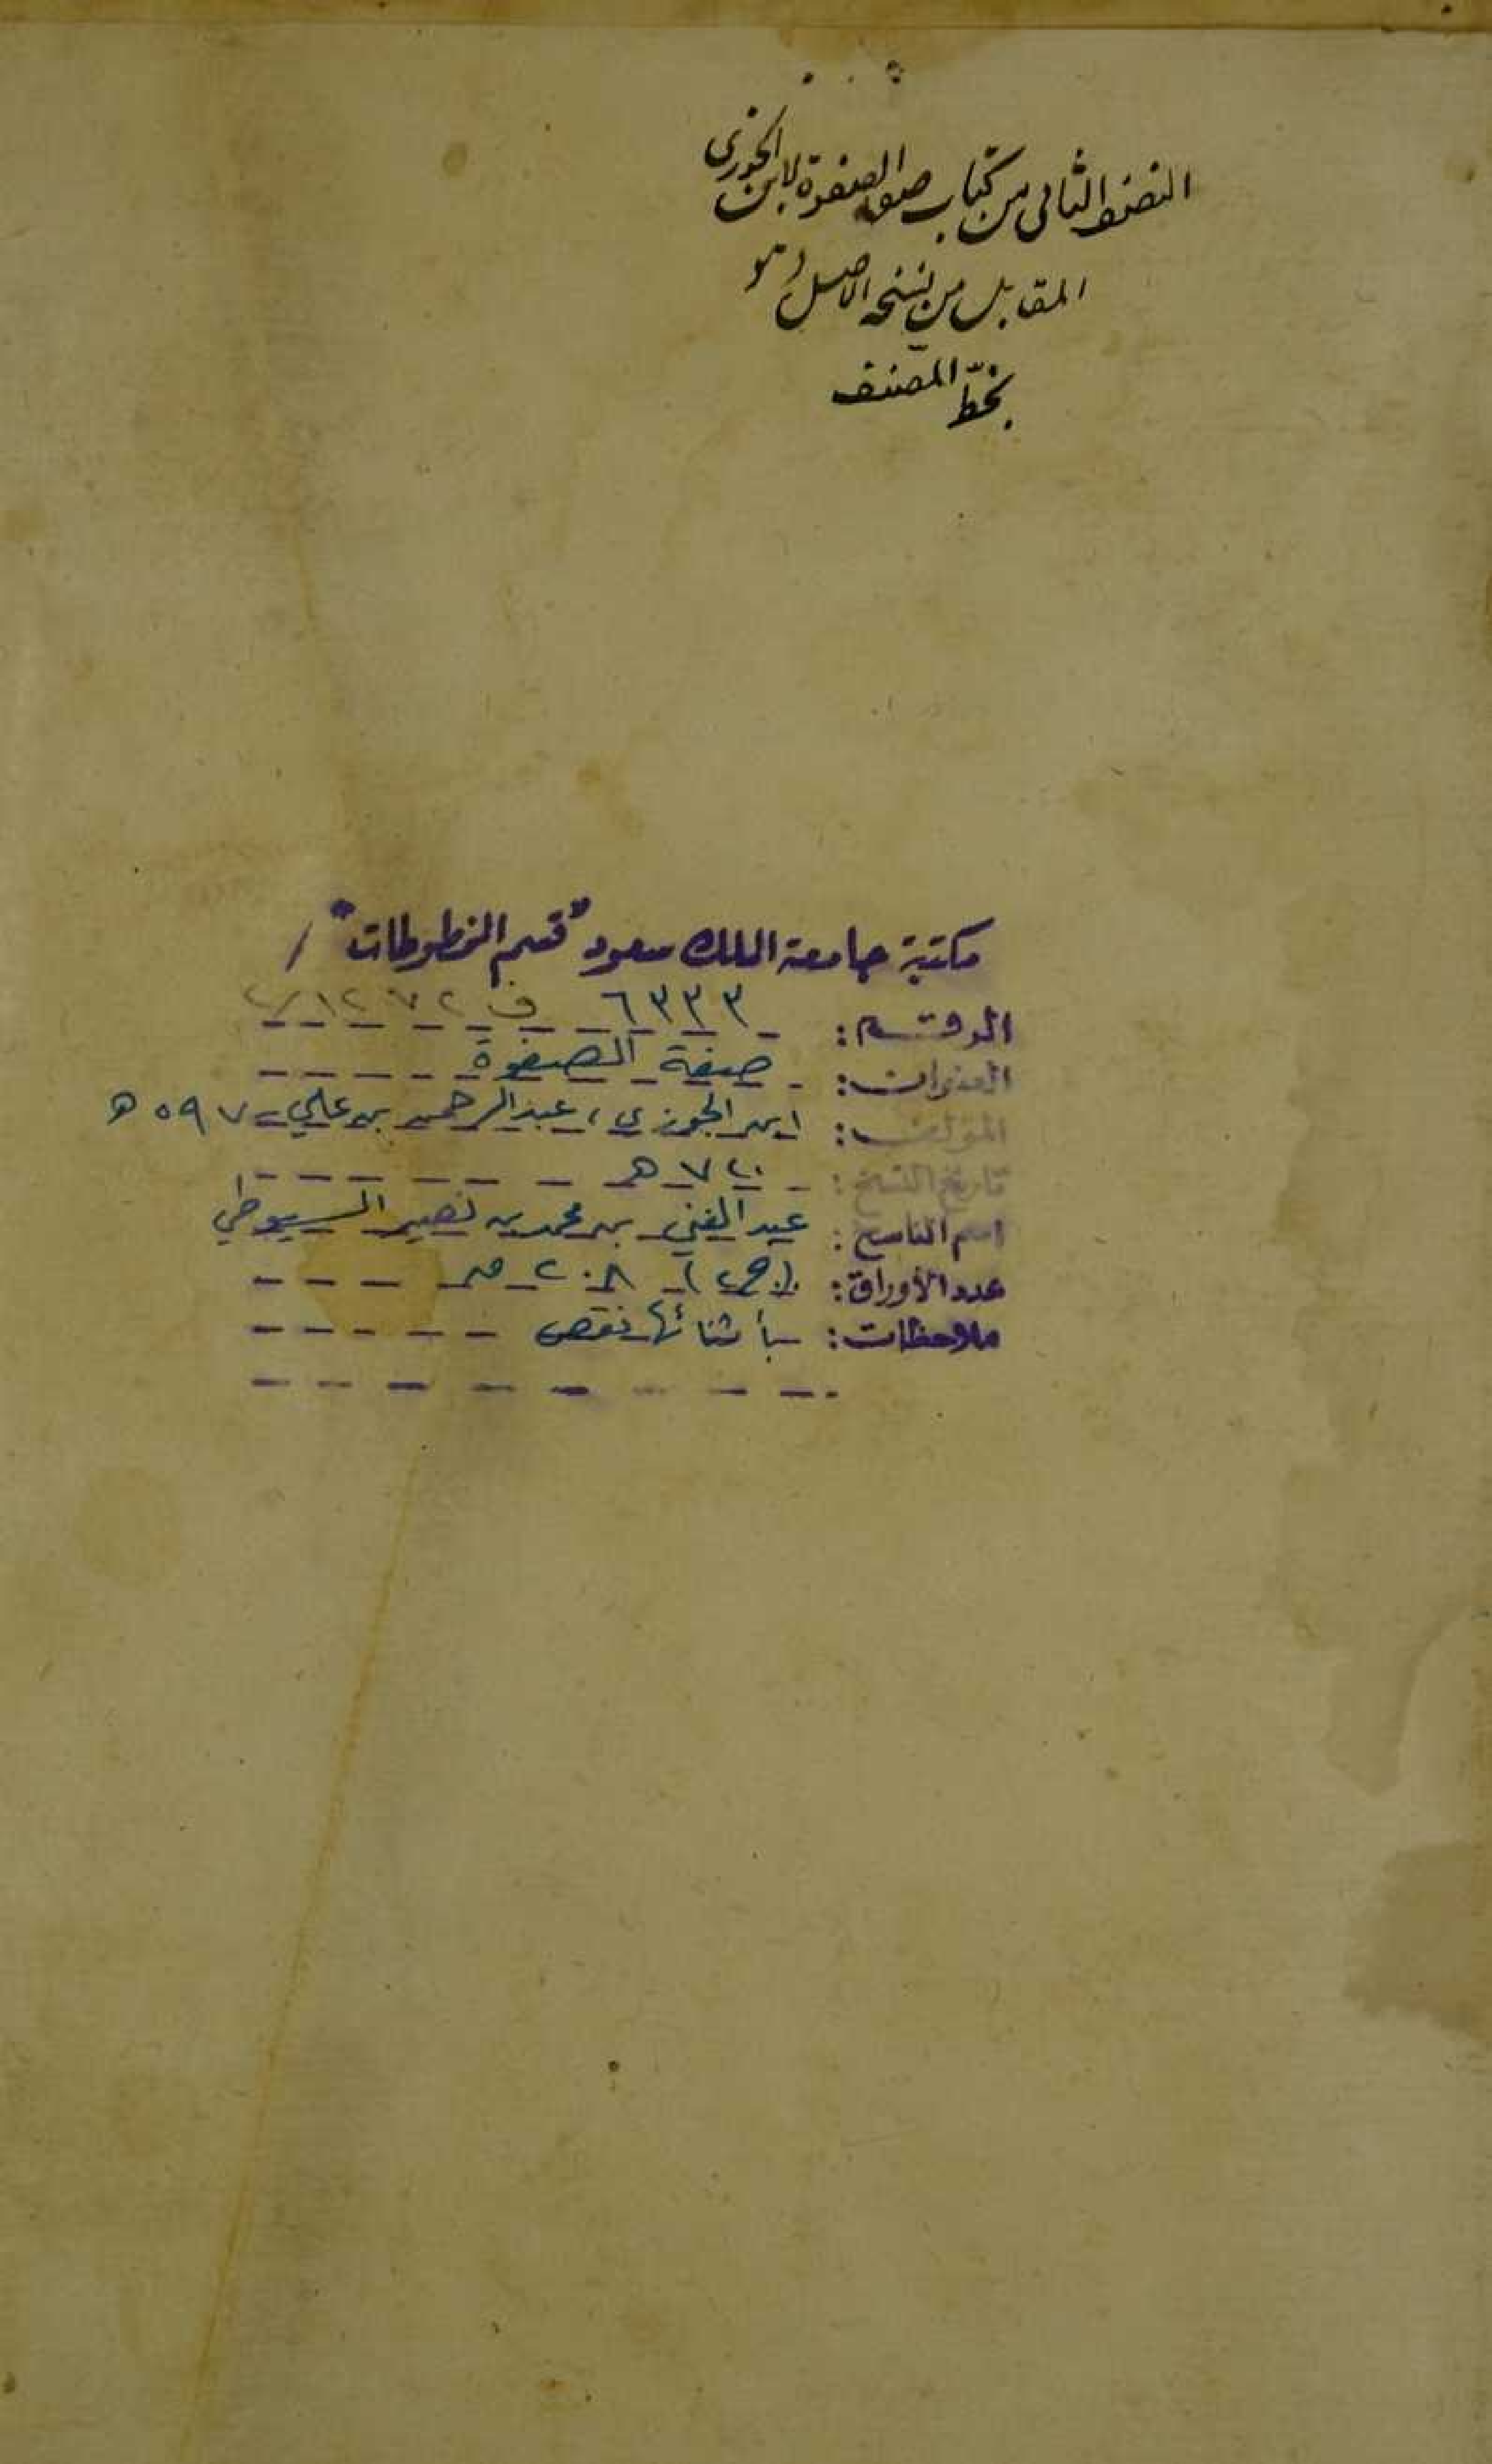 النصف الثاني من كتاب صفو الصفوة لابن الجوزى
المقابل من نسخة الاصل وهو
بخطّ المصنف
مكتبة جامعة الملك سعود "قسم المخطوطات" /
الرقم: ٦٣٣٣ ف ١٢٧٢ / ٢
العنوان: صفة الصفوة
المؤلف: ابن الجوزي، عبد الرحمن بن علي - ٥٩٧ هـ
تاريخ النسخ: ٧٢٠ هـ
اسم الناسخ: عبد الغني بن محمد بن نصير السيوطي
عدد الأوراق: (ج٢) ٢٠٨
ملاحظات: بأثنائها نقص